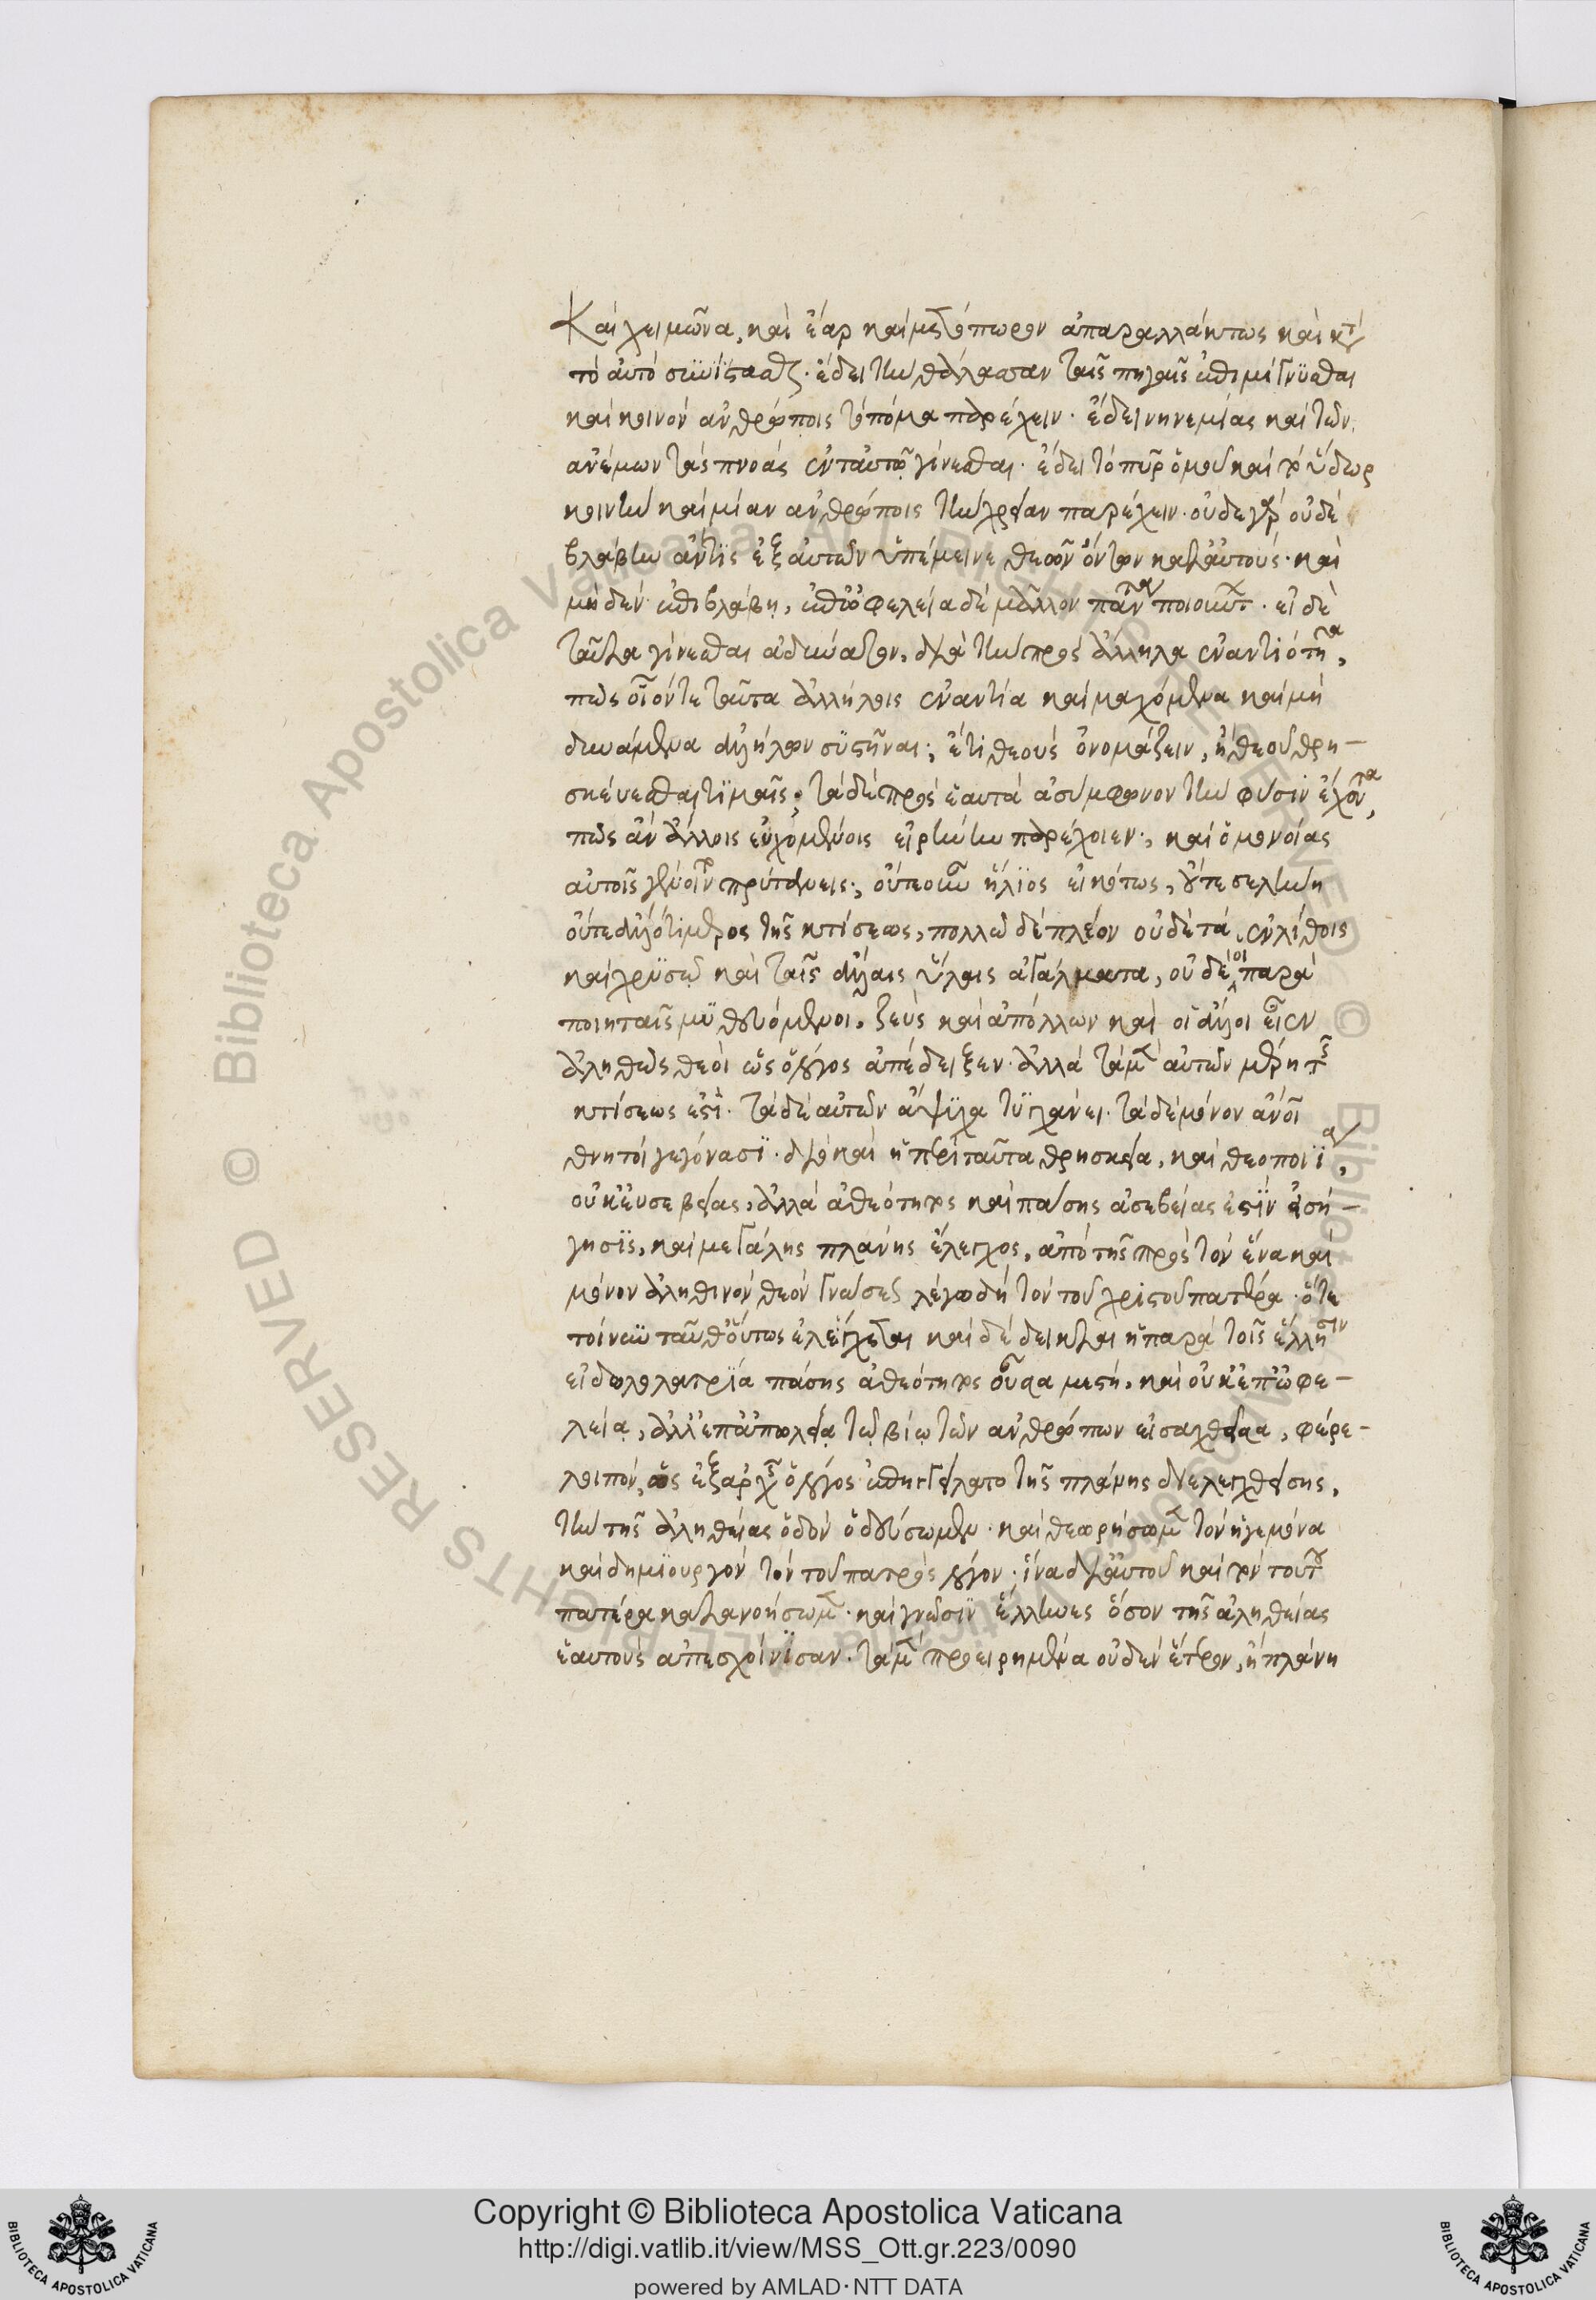 Καὶ χειμῶνα, καὶ ἔαρ καὶ μετόπωρον ἀπαραλλάκτως καὶ κατὰ
τὸ αὐτὸ συνίστασθαι. ἔδει τὴν θάλασσαν ταῖς πηγαῖς ἐπιμίγνυσθαι
καὶ κοινὸν ἀνθρώποις τὸ πόμα παρέχειν. ἔδει νηνεμίας καὶ τῶν
ἀνέμων τὰς πνοὰς ἐν ταὐτῷ γίνεσθαι. ἔδει τὸ πῦρ ὁμοῦ καὶ τὸ ὕδωρ
κοινὴν καὶ μίαν ἀνθρώποις τὴν χρείαν παρέχειν. οὐδὲ γὰρ οὐδὲ
βλάβην ἄν τις ἐξ αὐτῶν ὑπέμεινε θεῶν ὄντων κατ' αὐτούς. καὶ
μηδὲν ἐπὶ βλάβῃ, ἐπ' ὠφελείᾳ δὲ μᾶλλον πάντα ποιούντων. εἰ δὲ
ταῦτα γίνεσθαι ἀδύνατον, διὰ τὴν πρὸς ἄλληλα ἐναντιότητα,
πῶς οἷόν τε ταῦτα ἀλλήλοις ἐναντία καὶ μαχόμενα καὶ μὴ
δυνάμενα ἀλλήλων συστῆναι; ἔτι θεοὺς ὀνομάζειν, ἢ θεοῦ θρη-
σκεύεσθαι τιμαῖς; τὰ δὲ πρὸς ἑαυτὰ ἀσύμφωνον τὴν φύσιν ἔχοντα,
πῶς ἂν ἄλλοις εὐχομένοις εἰρήνην παρέχοιεν; καὶ ὁμονοίας
αὐτοῖς γένοιντο πρύτανεις; οὔτε οὖν ἥλιος εἰκότως, οὔτε σελήνη
οὔτε ἄλλό τι μέρος τῆς κτίσεως, πολλῷ δὲ πλέον οὐδὲ τὰ ἐν λίθοις
καὶ χρυσῷ καὶ ταῖς ἄλλαις ὕλαις ἀγάλματα, οὐδὲ οἱ παρὰ
ποιηταῖς μυθευόμενοι, ζεὺς καὶ ἀπόλλων καὶ οἱ ἄλλοι εἶεν
ἀληθῶς θεοὶ ὡς ὁ λόγος ἀπέδειξεν. ἀλλὰ τὰ μὲν αὐτῶν μέρη τῆς
κτίσεώς ἐστι. τὰ δὲ αὐτῶν ἄψυχα τυγχάνει. τὰ δὲ μόνον ἄνοι
θνητοὶ γεγόνασι. διὸ καὶ ἡ περὶ ταῦτα θρησκεία, καὶ θεοποιία,
οὐκ εὐσεβείας, ἀλλὰ ἀθεότητος καὶ πάσης ἀσεβείας ἐστὶν εἰσή-
γησις, καὶ μεγάλης πλάνης ἔλεγχος, ἀπὸ τῆς πρὸς τὸν ἕνα καὶ
μόνον ἀληθινὸν θεὸν γνώσεως λέγω δὴ τὸν τοῦ χριστοῦ πατέρα. ὅτε
τοίνυν ταῦθ' οὕτως ἐλέγχεται καὶ δέδεικται ἡ παρὰ τοῖς ἕλλησιν
εἰδωλολατρία πάσης ἀθεότητος οὖσα μεστή, καὶ οὐκ ἐπ' ὠφε-
λείᾳ, ἀλλ' ἐπ' ἀπωλείᾳ τῷ βίῳ τῶν ἀνθρώπων εἰσαχθεῖσα, φέρε
λοιπόν, ὡς ἐξ ἀρχῆς ὁ λόγος ἐπηγγείλατο τῆς πλάνης διελεγχθείσης,
τὴν τῆς ἀληθείας ὁδὸν ὁδεύσωμεν. καὶ θεωρήσωμεν τὸν ἡγεμόνα
καὶ δημιουργὸν τὸν τοῦ πατρὸς λόγον. ἵνα δι' αὐτοῦ καὶ τὸν τούτου
πατέρα κατανοήσωμεν. καὶ γνῶσιν ἕλληνες ὅσον τῆς ἀληθείας
ἑαυτοὺς ἀπεσχοίνισαν. τὰ μὲν προειρημένα οὐδὲν ἕτερον, ἢ πλάνη
Copyright © Biblioteca Apostolica Vaticana
http://digi.vatlib.it/view/MSS_Ott.gr.223/0090
powered by AMLAD·NTT DATA